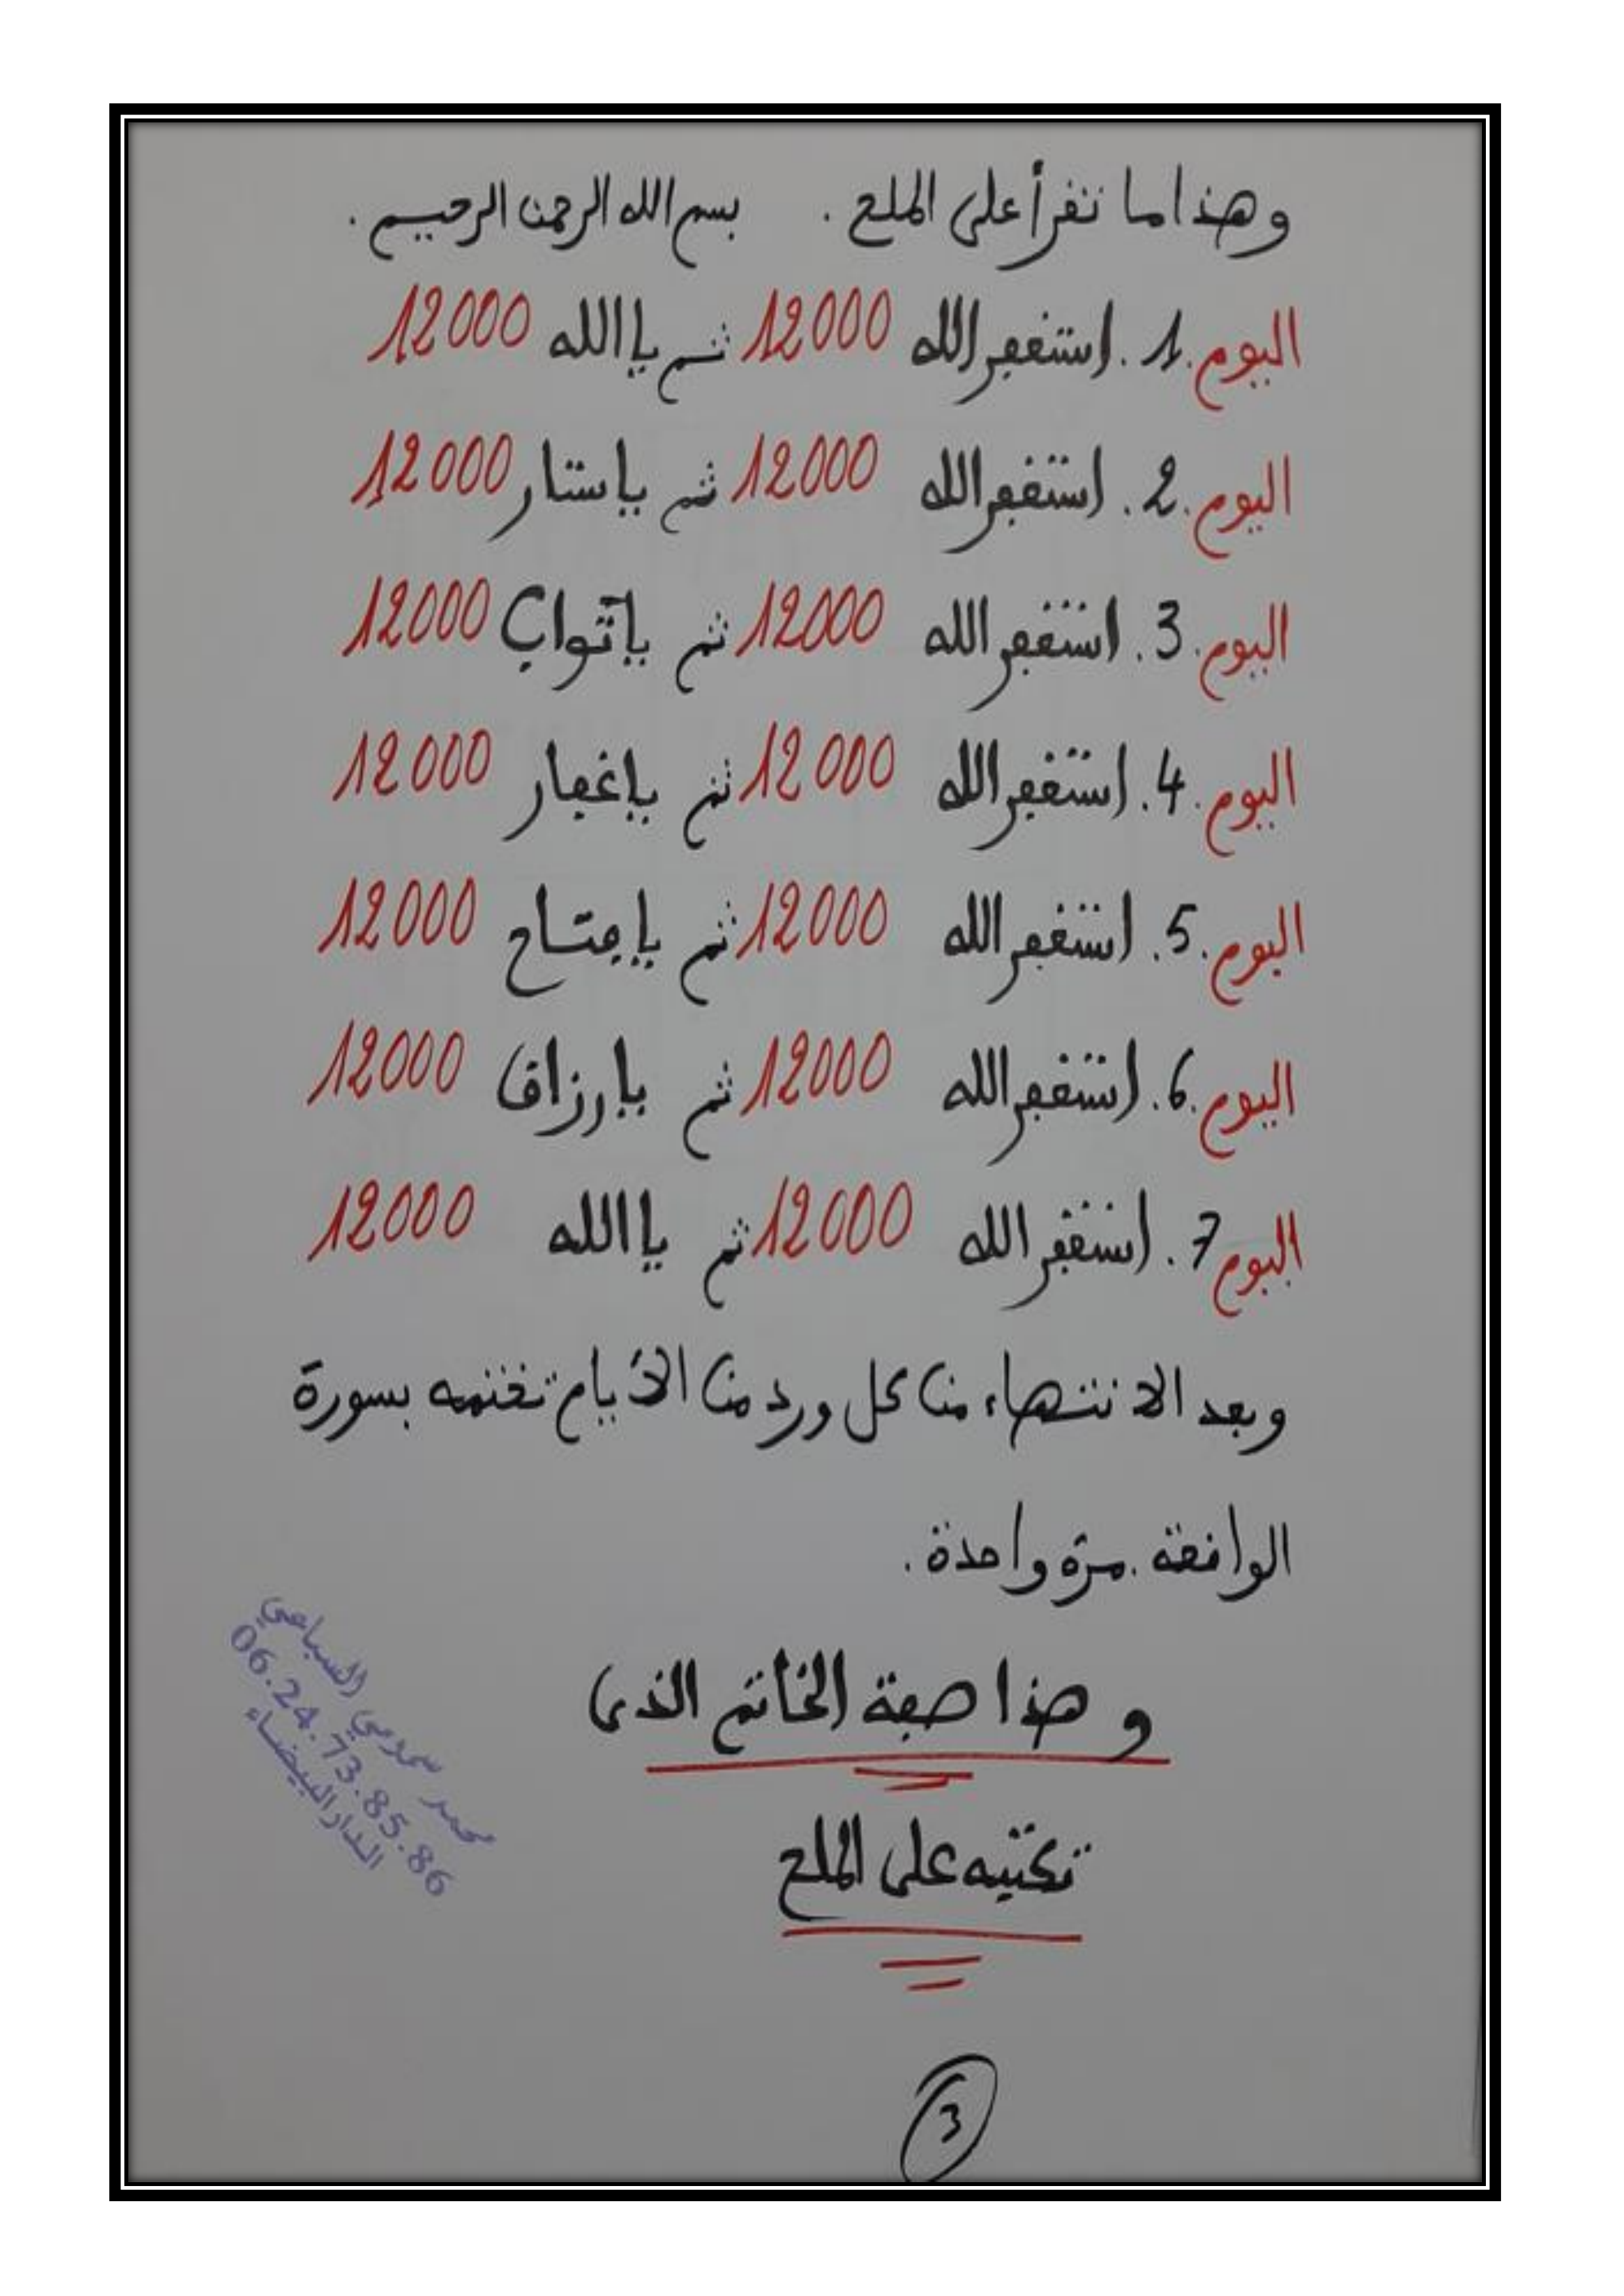 وهذا ما تقرأ على الملح . بسم الله الرحمن الرحيم .
اليوم . 1 . استغفر الله 12000 ثم يا الله 12000
اليوم . 2 . استغفر الله 12000 ثم يا ستار 12000
اليوم . 3 . استغفر الله 12000 ثم يا تواب 12000
اليوم . 4 . استغفر الله 12000 ثم يا غفار 12000
اليوم . 5 . استغفر الله 12000 ثم يا فتاح 12000
اليوم . 6 . استغفر الله 12000 ثم يا رزاق 12000
اليوم 7 . استغفر الله 12000 ثم يا الله 12000
وبعد الانتهاء من كل ورد من الأيام تختمه بسورة
الواقعة . مرة واحدة .
وهذا صفة الخاتم الذي
تكتبه على الملح
محمد سمومي السباعي
06.24.73.85.86
الدار البيضاء
3